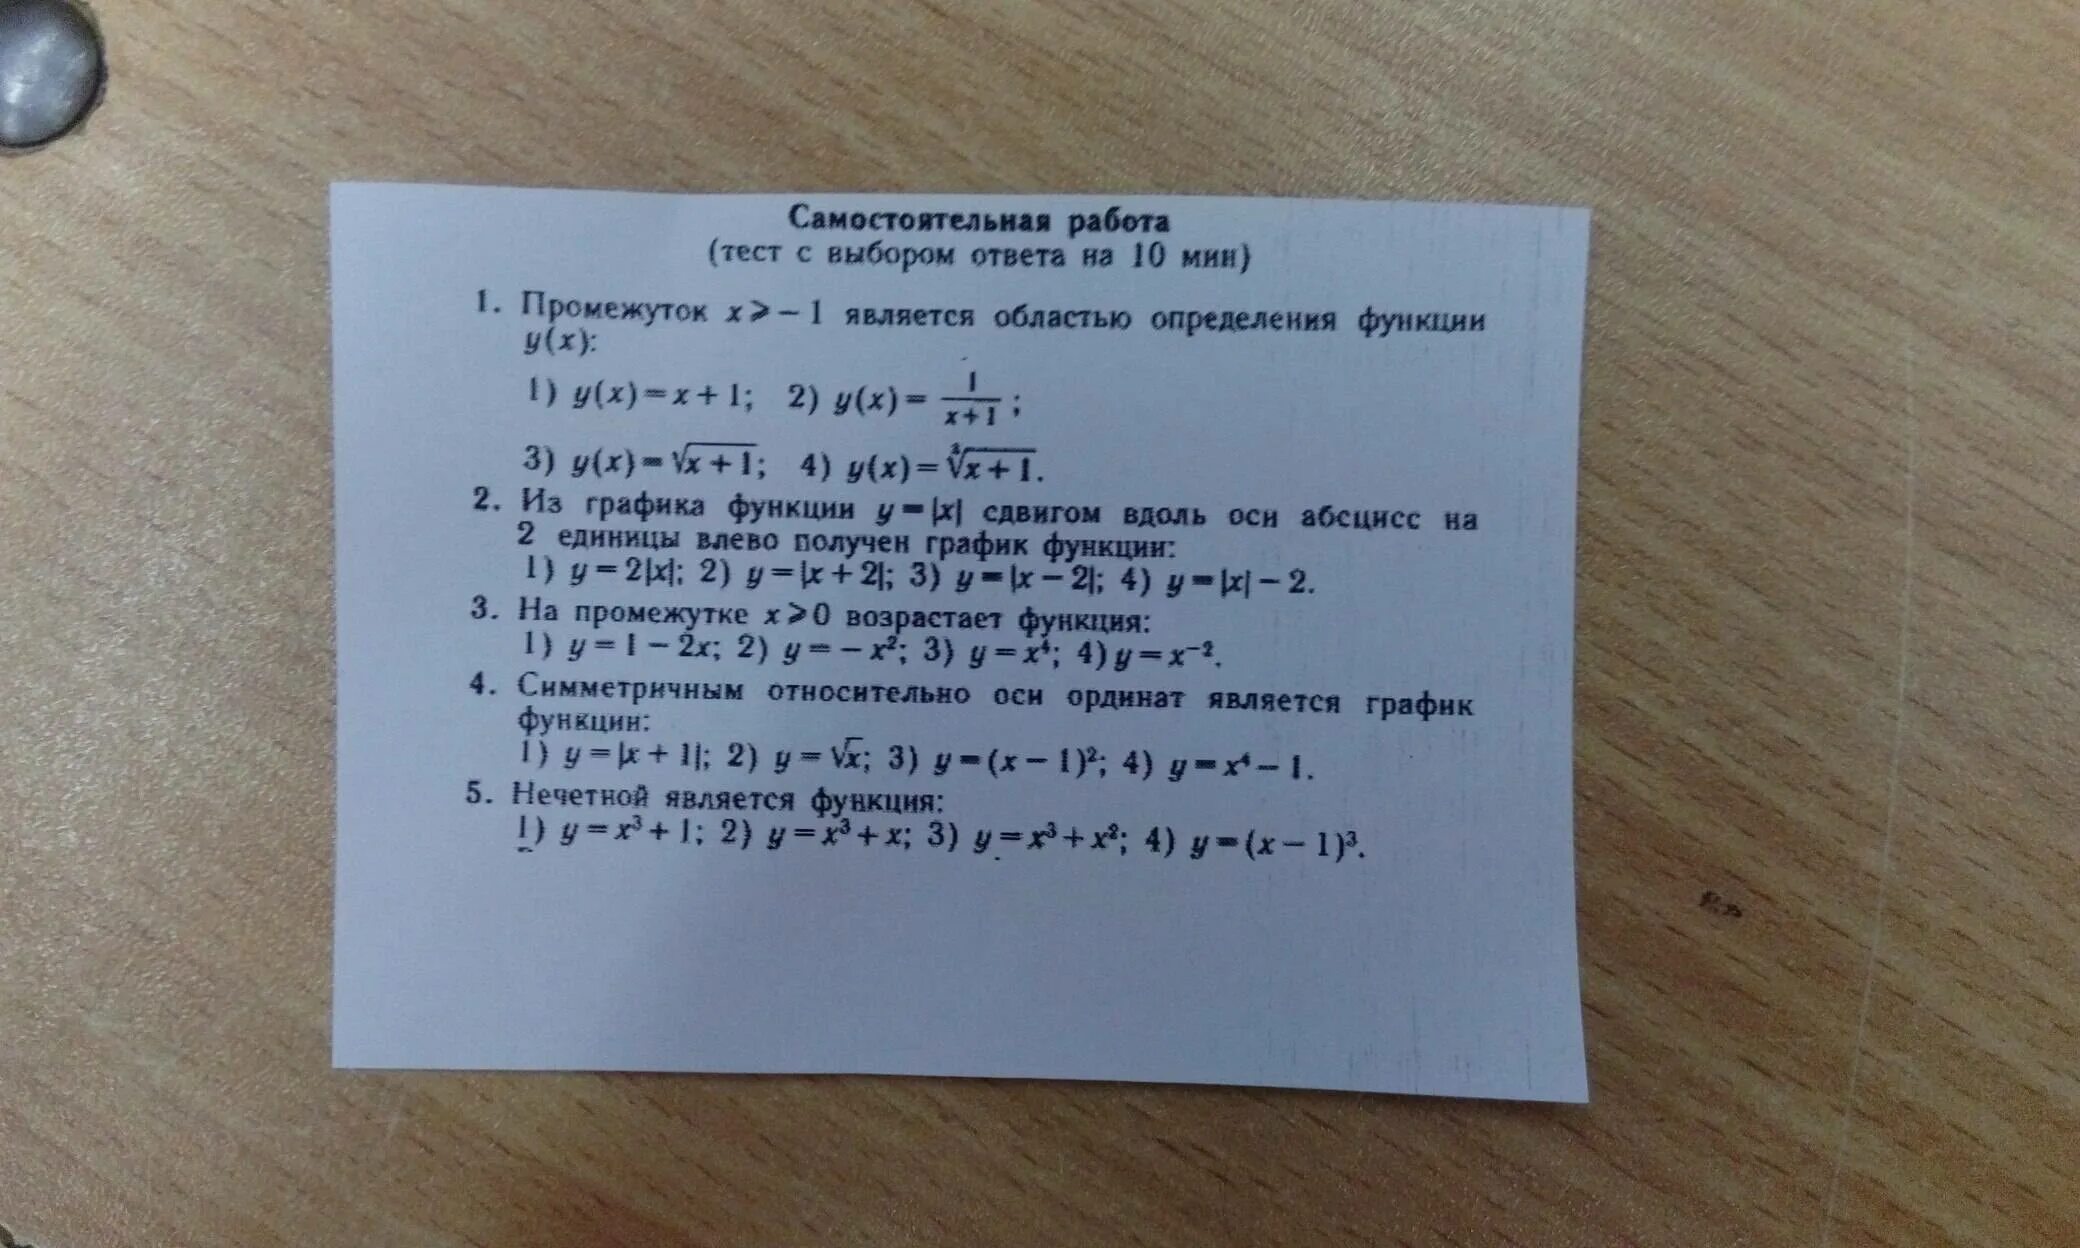 Самостоятельная работа
(тест с выбором ответа на 10 мин)
1. Промежуток x ⩾ − 1 является областью определения функции
y(x):
1) y(x) = x + 1; 2) y(x) = 1/(x+1);
3) y(x) = √(x + 1); 4) y(x) = ∛(x + 1).
2. Из графика функции y = |x| сдвигом вдоль оси абсцисс на
2 единицы влево получен график функции:
1) y = 2|x|; 2) y = |x + 2|; 3) y = |x − 2|; 4) y = |x| − 2.
3. На промежутке x ⩾ 0 возрастает функция:
1) y = 1 − 2x; 2) y = − x²; 3) y = x⁴; 4) y = x⁻².
4. Симметричным относительно оси ординат является график
функции:
1) y = |x + 1|; 2) y = √x; 3) y = (x − 1)²; 4) y = x⁴ − 1.
5. Нечетной является функция:
1) y = x³ + 1; 2) y = x³ + x; 3) y = x³ + x²; 4) y = (x − 1)³.